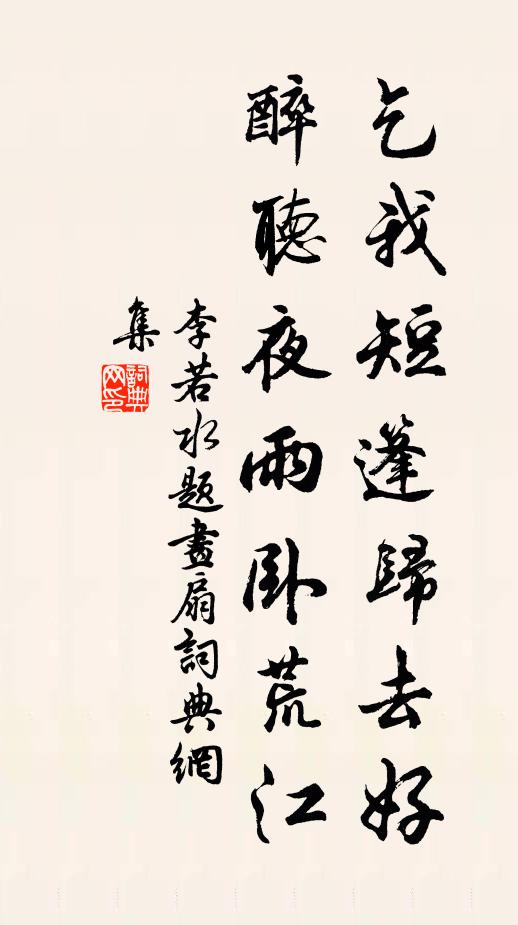 乞我短蓬歸去好
醉聽夜雨卧荒江
李若水題畫扇詞典網
集
詞典网印